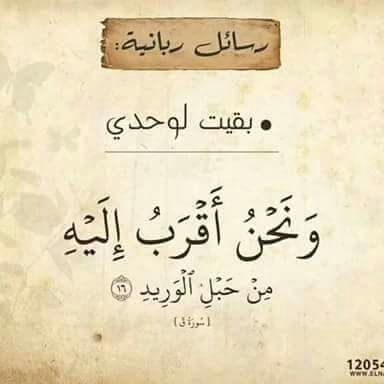 رسائل ربانية:
• بقيت لوحدي
وَنَحْنُ أَقْرَبُ إِلَيْهِ
مِنْ حَبْلِ ٱلْوَرِيدِ ۝١٦
[ سُورَة ق ]
12054
WWW.ELN